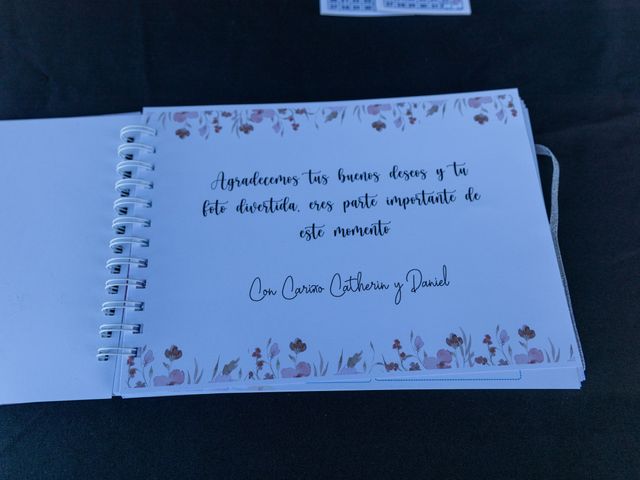 Agradecemos tus buenos deseos y tu
foto divertida, eres parte importante de
este momento
Con Cariño Catherin y Daniel